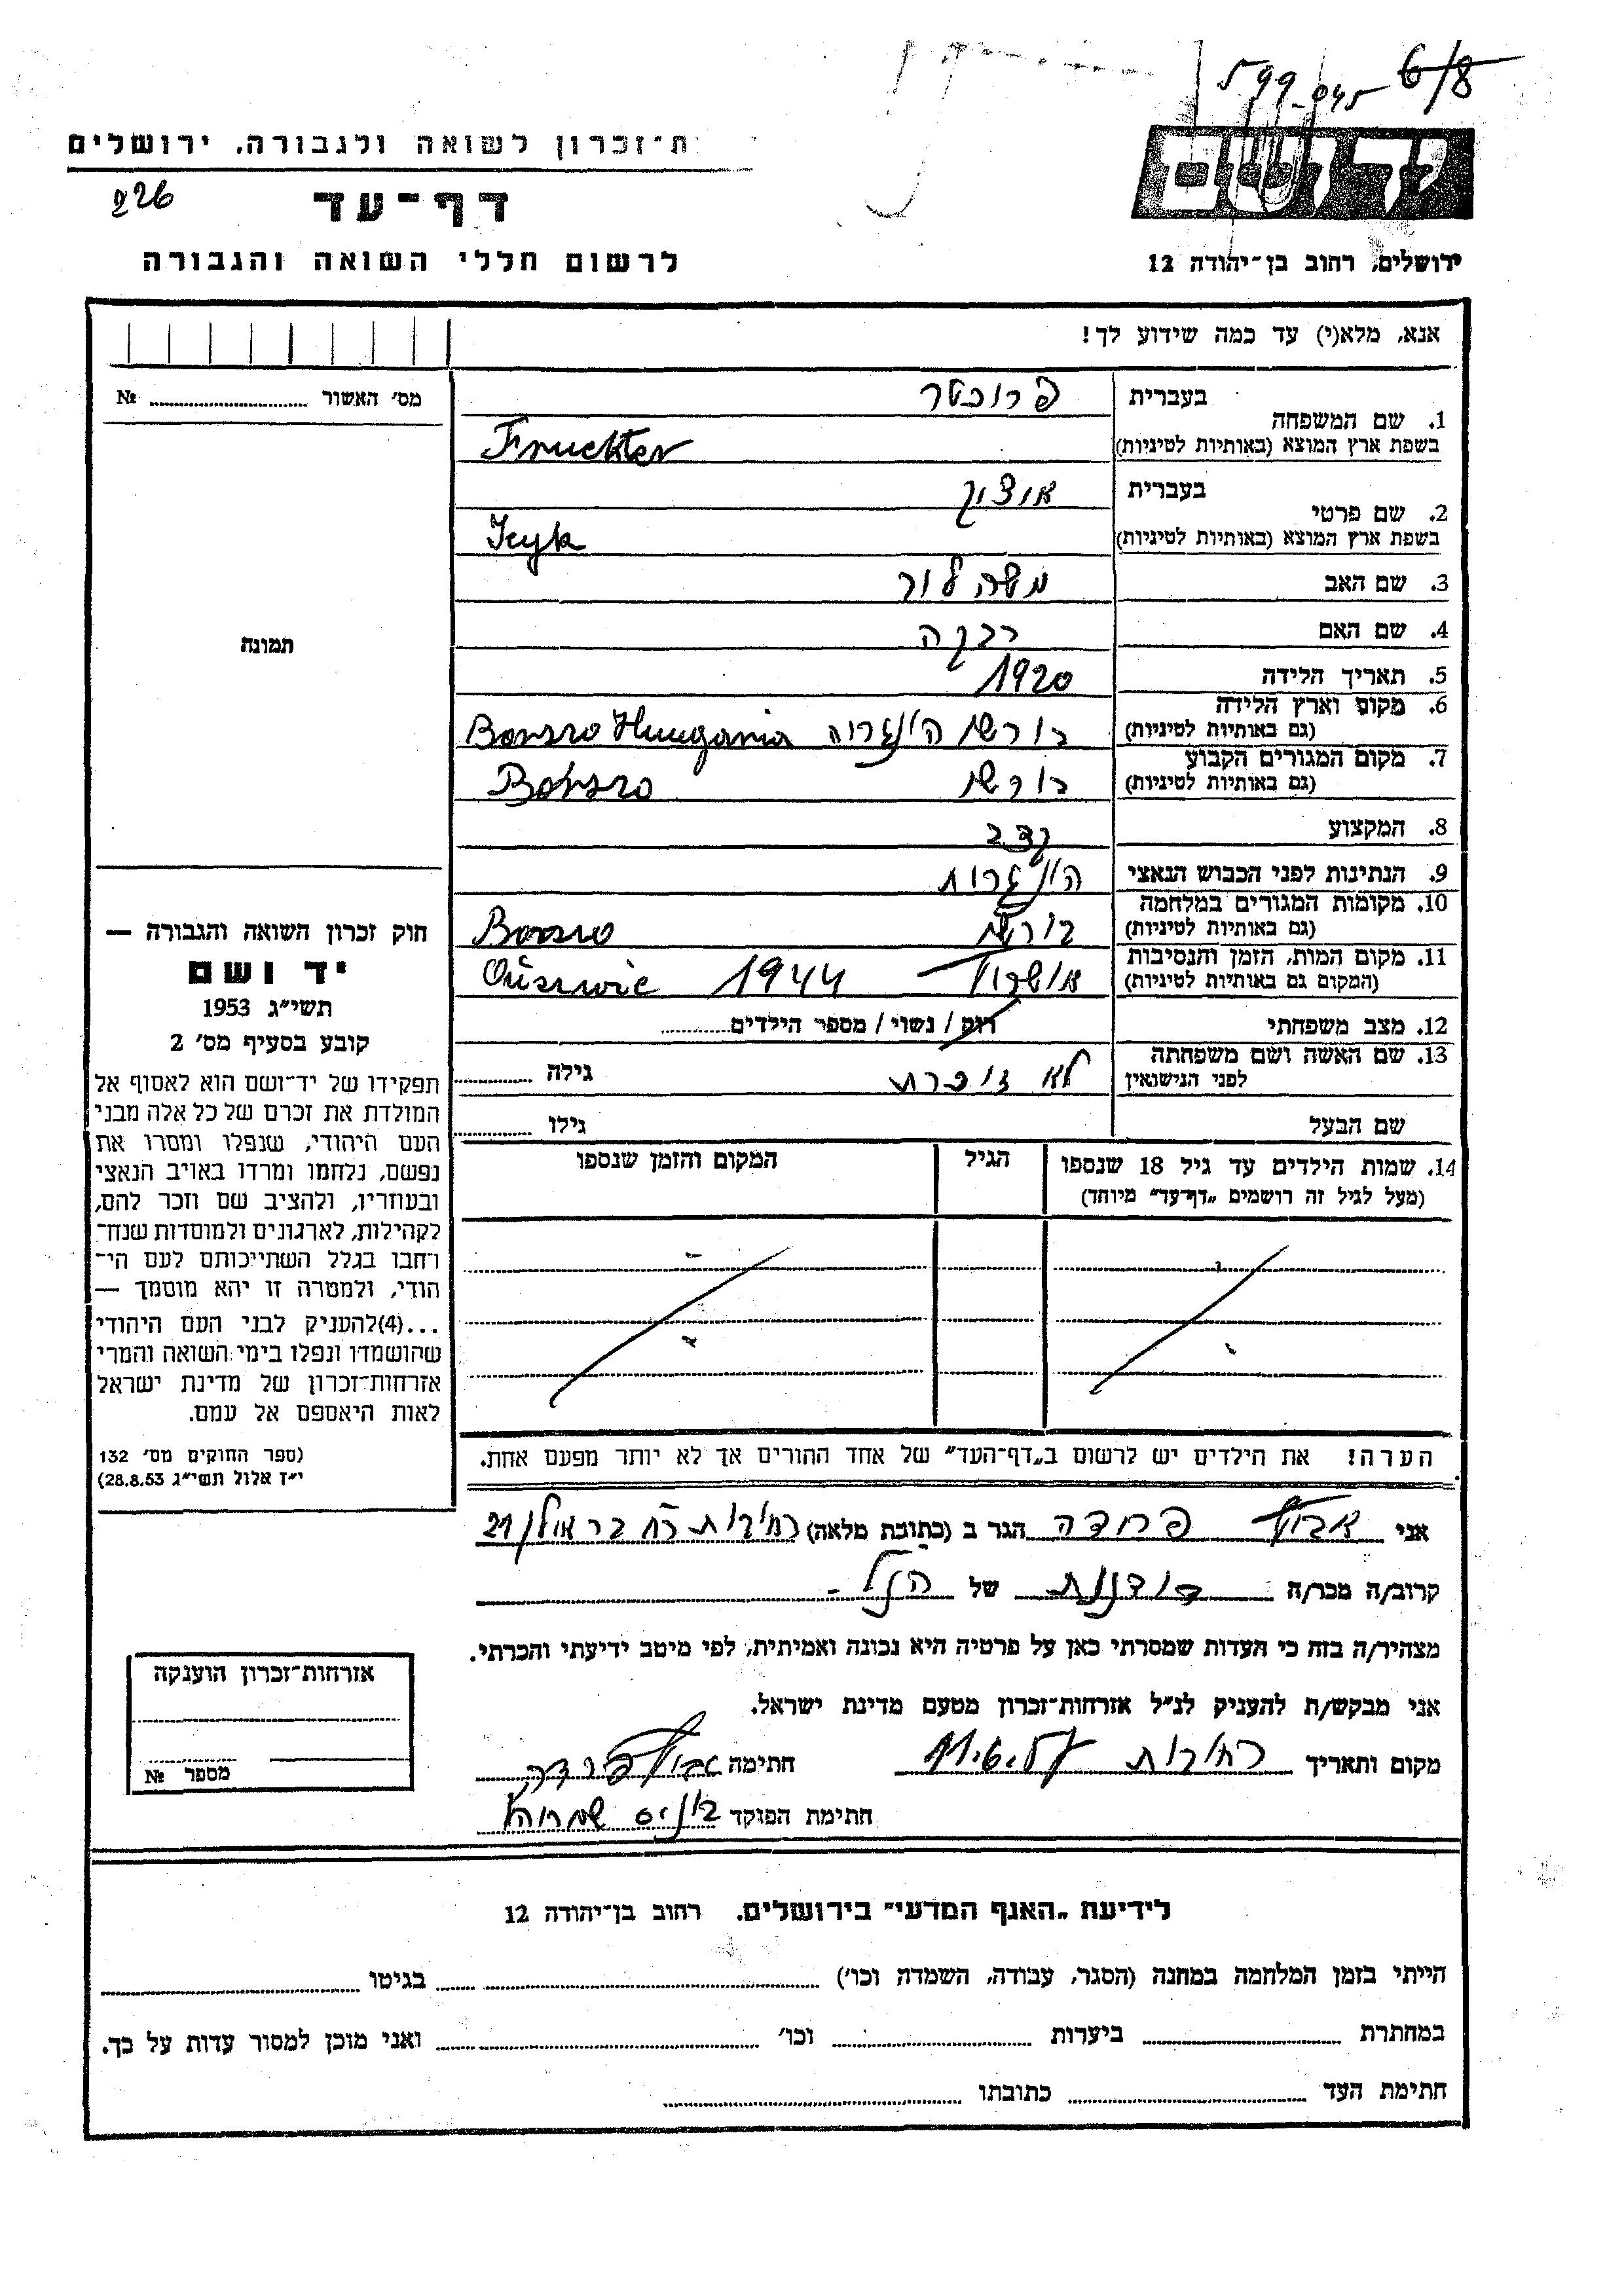 599 045 6/8
ת־זכרון לשואה ולגבורה. ירושלים
226
דף־עד
לרשום חללי השואה והגבורה
ירושלים, רחוב בן־יהודה 12
אנא, מלא(י) עד כמה שידוע לך!
מס׳ האשור № 
1. שם המשפחה
בעברית פרוכטר
בשפת ארץ המוצא (באותיות לטיניות) Fruckter
2. שם פרטי
בעברית איציק
בשפת ארץ המוצא (באותיות לטיניות) Icyk
3. שם האב משה
4. שם האם רבקה
5. תאריך הלידה 1920
6. מקום וארץ הלידה
(גם באותיות לטיניות) בורשו הונגריה Borszo Hungaria
7. מקום המגורים הקבוע
(גם באותיות לטיניות) בורשו Borszo
8. המקצוע קצב
9. הנתינות לפני הכבוש הנאצי הונגרית
10. מקומות המגורים במלחמה
(גם באותיות לטיניות) בורשו Borszo
11. מקום המות, הזמן והנסיבות
(המקום גם באותיות לטיניות) 1944
12. מצב משפחתי רוק / נשוי / מספר הילדים
13. שם האשה ושם משפחתה
לפני הנישואין לא זוכרת גילה
שם הבעל גילו
14. שמות הילדים עד גיל 18 שנספו הגיל המקום והזמן שנספו
(מעל לגיל זה רושמים „דף־עד" מיוחד)
הערה! את הילדים יש לרשום ב„דף־העד" של אחד ההורים אך לא יותר מפעם אחת.
תמונה
חוק זכרון השואה והגבורה —
יד ושם
תשי״ג 1953
קובע בסעיף מס׳ 2
תפקידו של יד־ושם הוא לאסוף אל
המולדת את זכרם של כל אלה מבני
העם היהודי, שנפלו ומסרו את
נפשם, נלחמו ומרדו באויב הנאצי
ובעוזריו, ולהציב שם וזכר להם,
לקהילות, לארגונים ולמוסדות שנח־
רחבו בגלל השתייכותם לעם הי־
הודי, ולמטרה זו יהא מוסמך —
...(4)להעניק לבני העם היהודי
שהושמדו ונפלו בימי השואה והמרי
אזרחות־זכרון של מדינת ישראל
לאות היאספם אל עמם.
(ספר החוקים מס׳ 132
י״ז אלול תשי״ג 28.8.53)
אני פרידה הגר ב (כתובת מלאה) רחובות רח בר אילן 21
קרוב/ה מכר/ה דודנית של הנ״ל
מצהיר/ה בזה כי העדות שמסרתי כאן על פרטיה היא נכונה ואמיתית, לפי מיטב ידיעתי והכרתי.
אני מבקש/ת להעניק לנ״ל אזרחות־זכרון מטעם מדינת ישראל.
מקום ותאריך רחובות חתימה פרידה
חתימת הפוקד
אזרחות־זכרון הוענקה
מספר №
לידיעת „האגף המדעי" בירושלים. רחוב בן־יהודה 12
הייתי בזמן המלחמה במחנה (הסגר, עבודה, השמדה וכו׳) בגיטו
במחתרת ביערות וכו׳ ואני מוכן למסור עדות על כך.
חתימת העד כתובתו